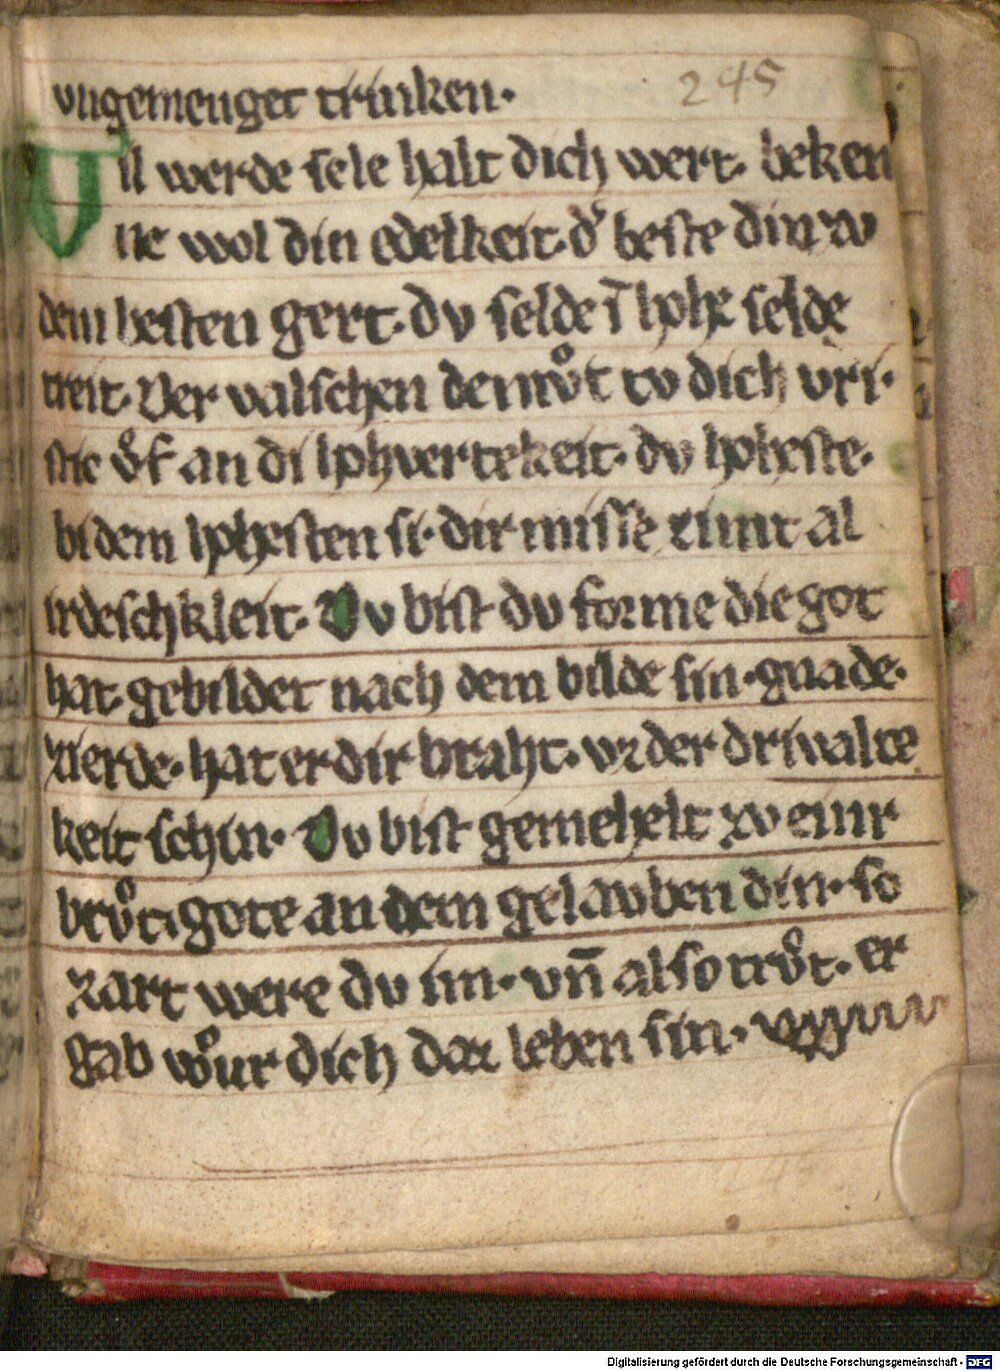 245
vngemenget trinken·
Vil werde sele halt dich wert· beken
ne wol din edelkeit· d͛ beste din zv
dem besten gert· dv selde ī hohe selde
treit· Der valschen demvͦt tv dich vri·
stic vͦf an di hohvertekeit· dv hoheste·
bi dem hohesten si· dir misse zimt al
irdeschkleit· Dv bist dv forme die got
hat gebildet nach dem bilde sin· gnade·
zierde· hat er dir braht· vz der drivalte
keit schin· Dv bist gemehelt zv einir
brvͦt· gote an dem gelavben din· so
zart were dv im· vn̄ also trvͦt· er
gab vvͦur dich daz leben sin·
Digitalisierung gefördert durch die Deutsche Forschungsgemeinschaft - DFG